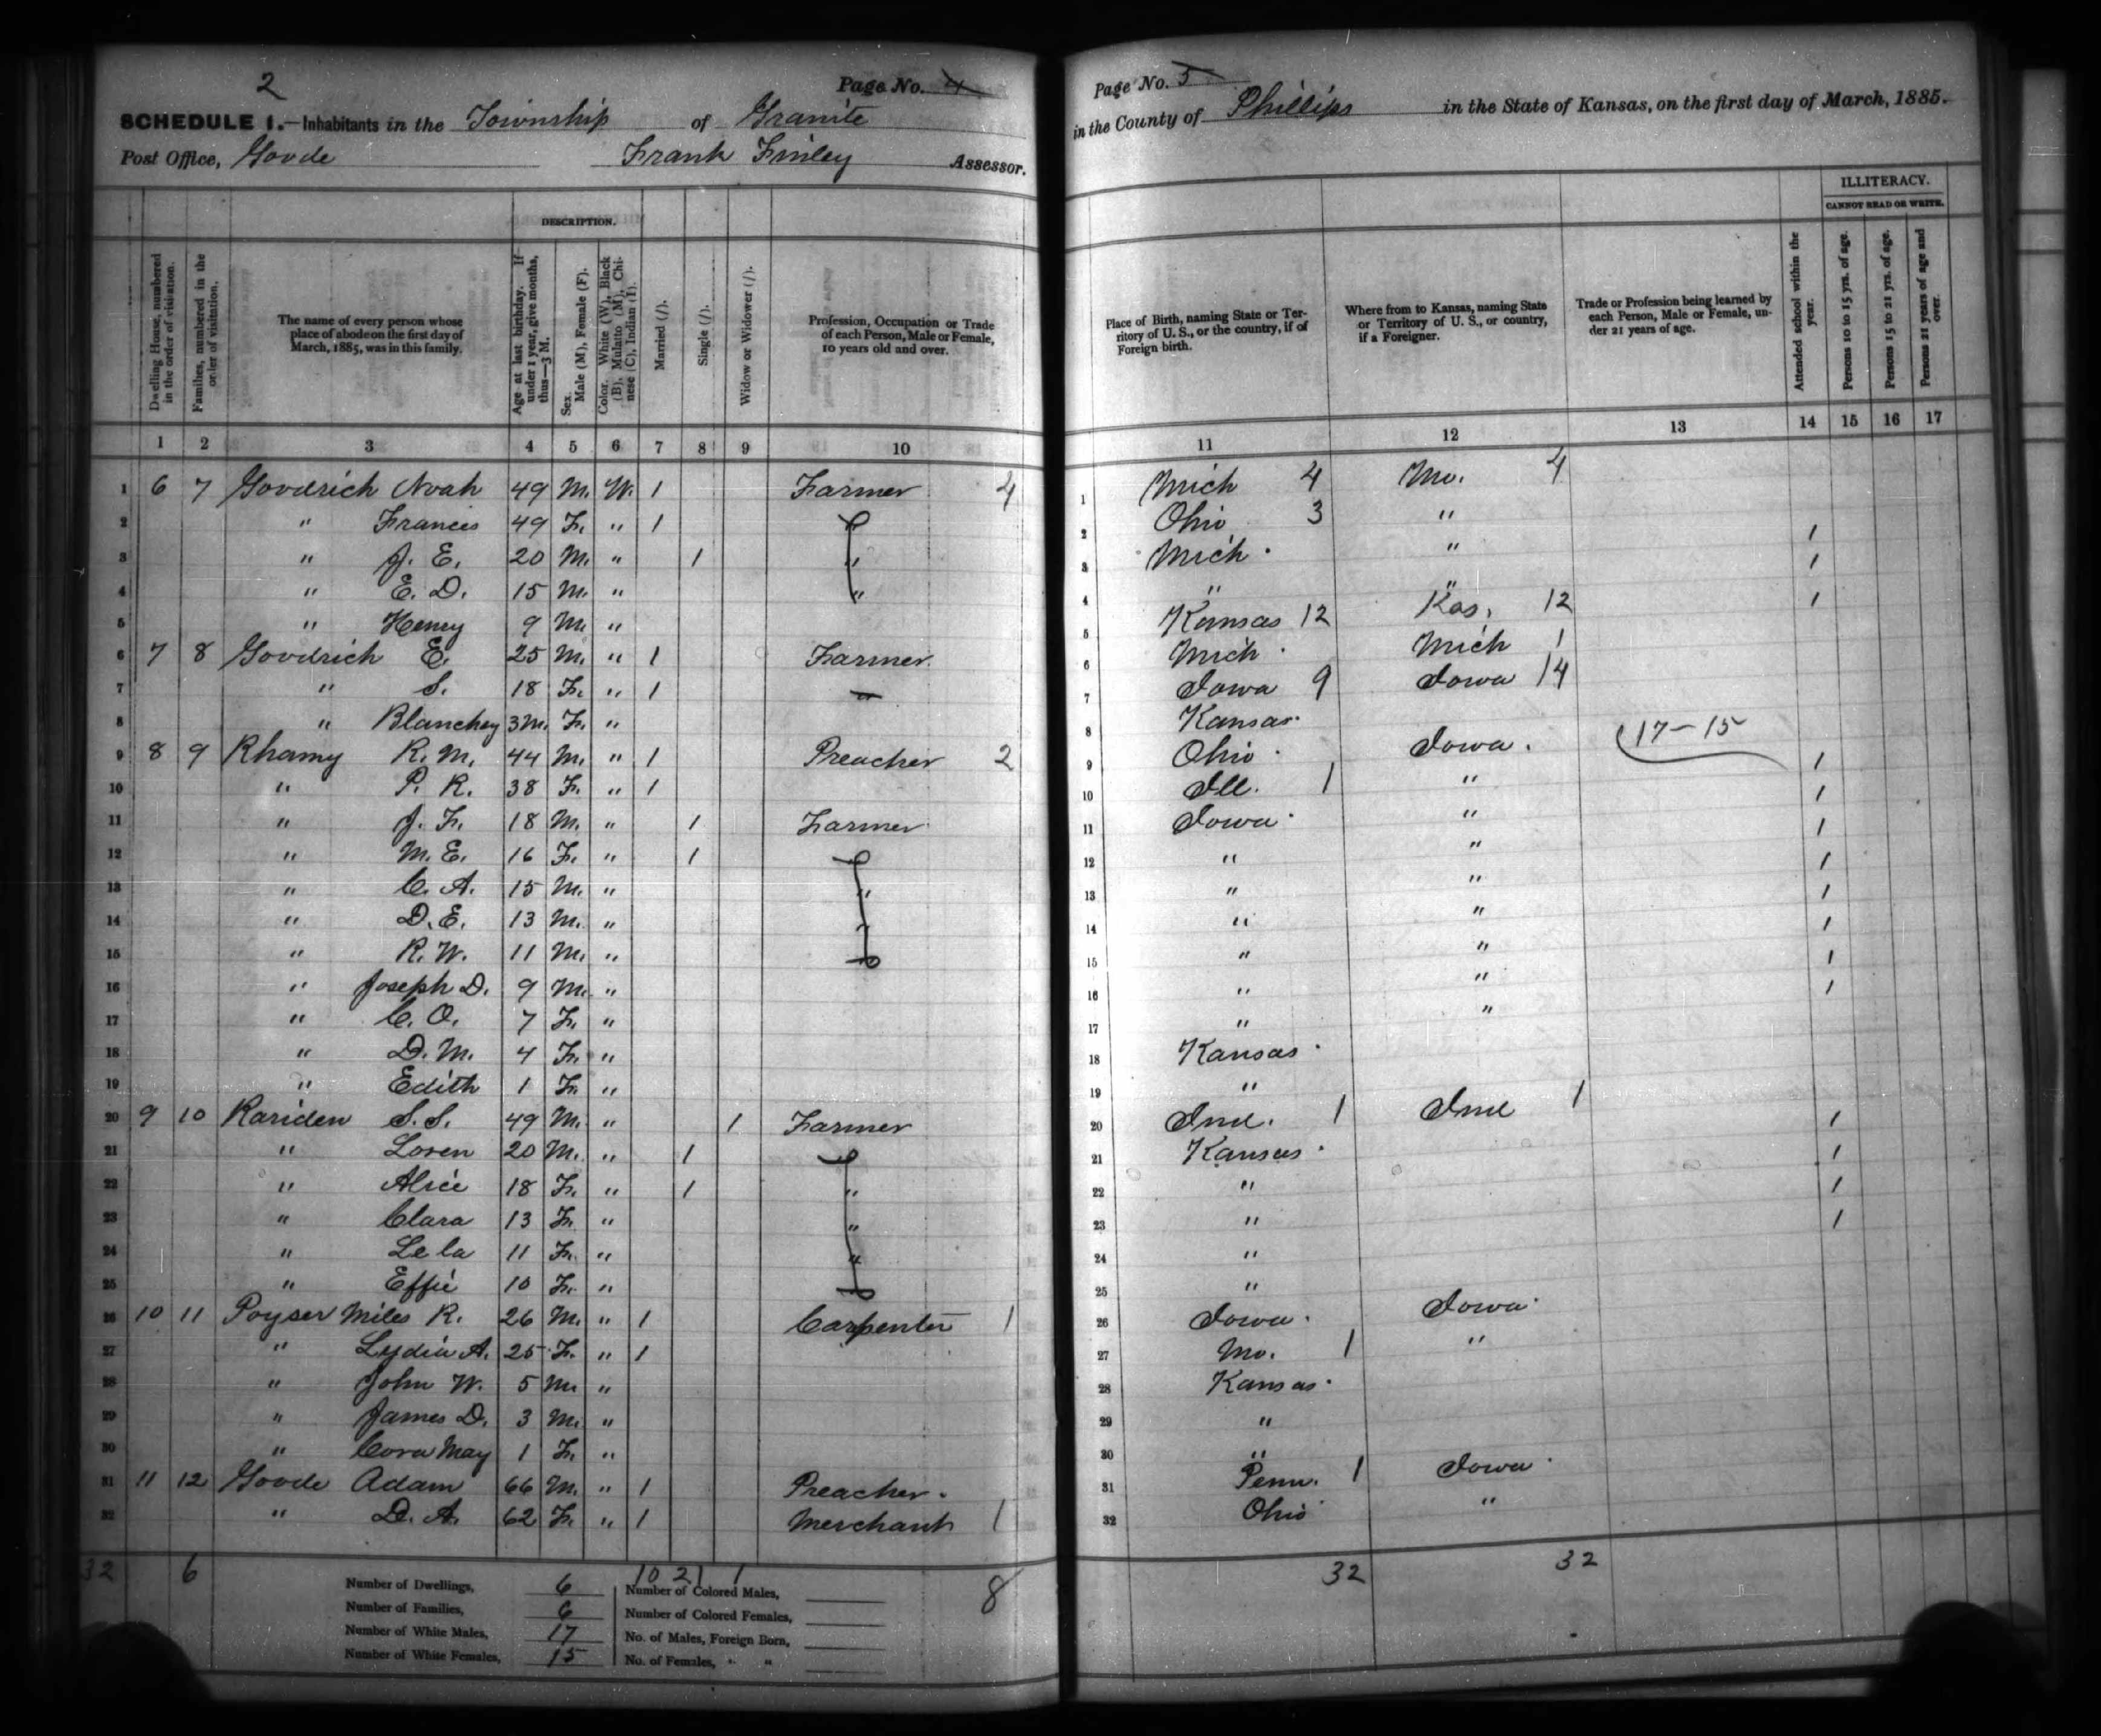 2
Page No. 4
SCHEDULE 1.—Inhabitants in the Township of Granite
Post Office, Goode Frank Finley Assessor.
DESCRIPTION.
Dwelling House, numbered in the order of visitation.
Families, numbered in the order of visitation.
The name of every person whose place of abode on the first day of March, 1885, was in this family.
Age at last birthday. If under 1 year, give months, thus—3 M.
Sex. Male (M), Female (F).
Color. White (W), Black (B), Mulatto (M), Chinese (C), Indian (I).
Married (/).
Single (/).
Widow or Widower (/).
Profession, Occupation or Trade of each Person, Male or Female, 10 years old and over.
1 2 3 4 5 6 7 8 9 10
1 6 7 Goodrich Noah 49 M. W. 1 Farmer 4
2 " Frances 49 F. " 1
3 " J. E. 20 M. " 1 "
4 " E. D. 15 M. " "
5 " Henry 9 M. "
6 7 8 Goodrich E. 25 M. " 1 Farmer.
7 " S. 18 F. " 1 —
8 " Blanchey 3M. F. "
9 8 9 Rhamy R. M. 44 M. " 1 Preacher 2
10 " P. R. 38 F. " 1
11 " J. F. 18 M. " 1 Farmer
12 " M. E. 16 F. " 1
13 " C. A. 15 M. " "
14 " D. E. 13 M. " "
15 " R. W. 11 M. "
16 " Joseph D. 9 M. "
17 " C. O. 7 F. "
18 " D. M. 4 F. "
19 " Edith 1 F. "
20 9 10 Rariden S. S. 49 M. " 1 Farmer
21 " Loren 20 M. " 1
22 " Alice 18 F. " 1 "
23 " Clara 13 F. " "
24 " Lela 11 F. " "
25 " Effie 10 F. "
26 10 11 Poyser Miles R. 26 M. " 1 Carpenter 1
27 " Lydia A. 25 F. " 1
28 " John W. 5 M. "
29 " James D. 3 M. "
30 " Cora May 1 F. "
31 11 12 Goode Adam 66 M. " 1 Preacher.
32 " D. A. 62 F. " 1 Merchant 1
32 6 10 21 1 8
Number of Dwellings, 6 Number of Colored Males,
Number of Families, 6 Number of Colored Females,
Number of White Males, 17 No. of Males, Foreign Born,
Number of White Females, 15 No. of Females, " "
Page No. 5
in the County of Phillips in the State of Kansas, on the first day of March, 1885.
ILLITERACY.
CANNOT READ OR WRITE.
Place of Birth, naming State or Territory of U. S., or the country, if of Foreign birth.
Where from to Kansas, naming State or Territory of U. S., or country, if a Foreigner.
Trade or Profession being learned by each Person, Male or Female, under 21 years of age.
Attended school within the year.
Persons 10 to 15 yrs. of age.
Persons 15 to 21 yrs. of age.
Persons 21 years of age and over.
11 12 13 14 15 16 17
1 Mich 4 Mo. 4
2 Ohio 3 " 1
3 Mich. " 1
4 " " 1
5 Kansas 12 Kas. 12
6 Mich. Mich 1
7 Iowa 9 Iowa 14
8 Kansas.
9 Ohio. Iowa. 17-15 1
10 Ill. 1 " 1
11 Iowa. " 1
12 " " 1
13 " " 1
14 " " 1
15 " " 1
16 " " 1
17 " "
18 Kansas.
19 "
20 Ind. 1 Ind 1 1
21 Kansas. 1
22 " 1
23 " 1
24 "
25 "
26 Iowa. Iowa.
27 Mo. 1 "
28 Kansas.
29 "
30 "
31 Penn. 1 Iowa.
32 Ohio "
32 32